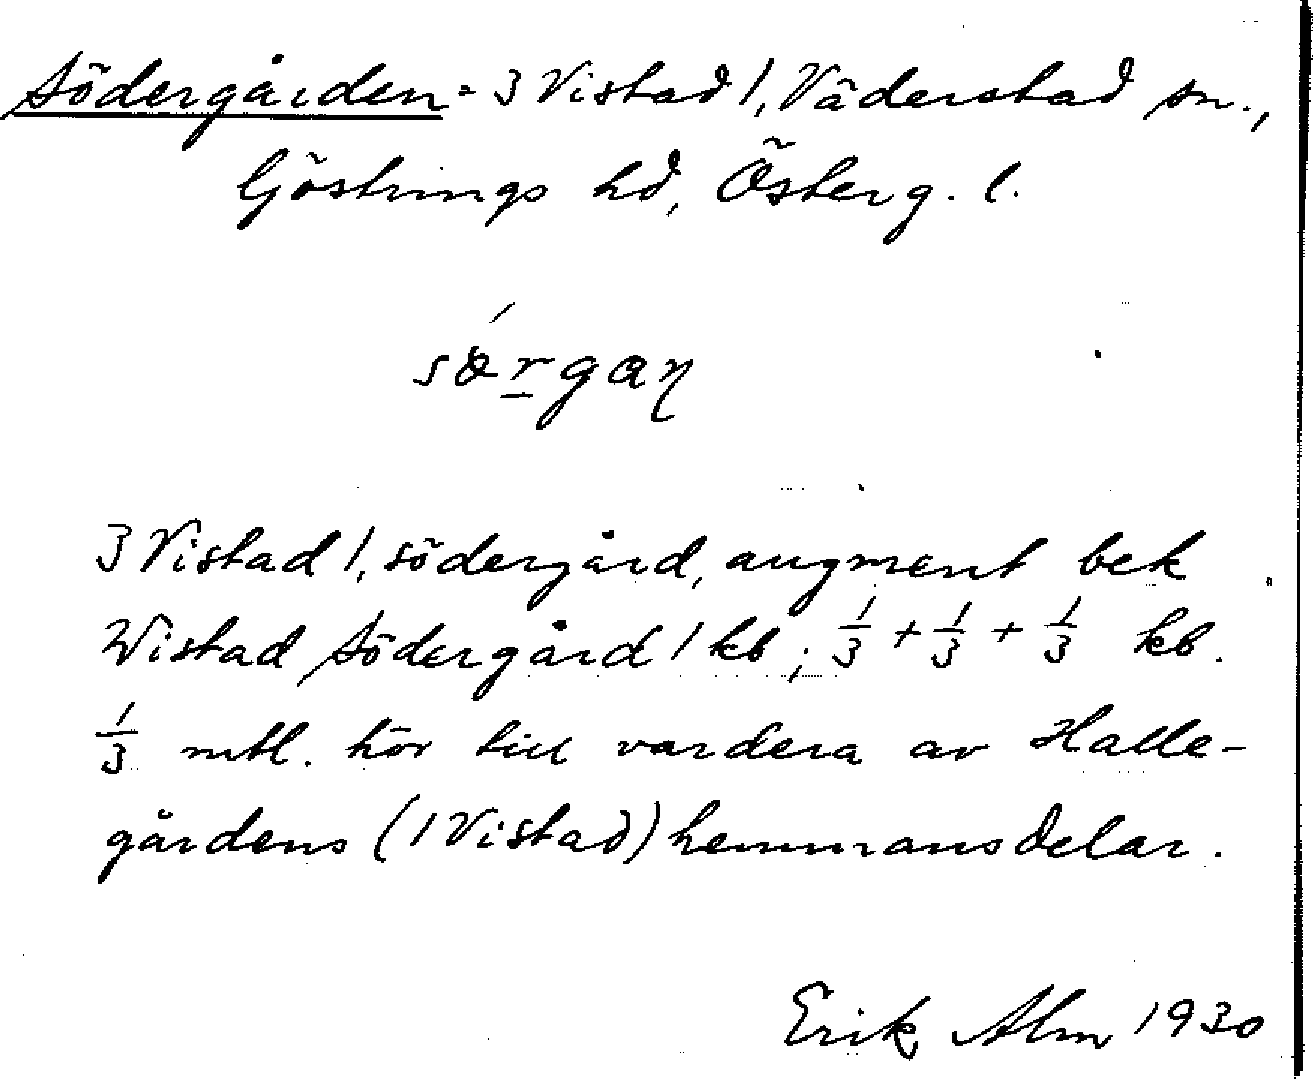 Södergården = 3 Vistad 1, Väderstad sn.,
Göstrings hd, Österg. l.
sörgaɳ
3 Vistad 1, södergård, augment bek
Wistad Södergård 1 kb; 1/3 + 1/3 + 1/3 kb.
1/3 mtl. hör till vardera av Halle-
gårdens (1 Vistad) hemmansdelar.
Erik Alm 1930